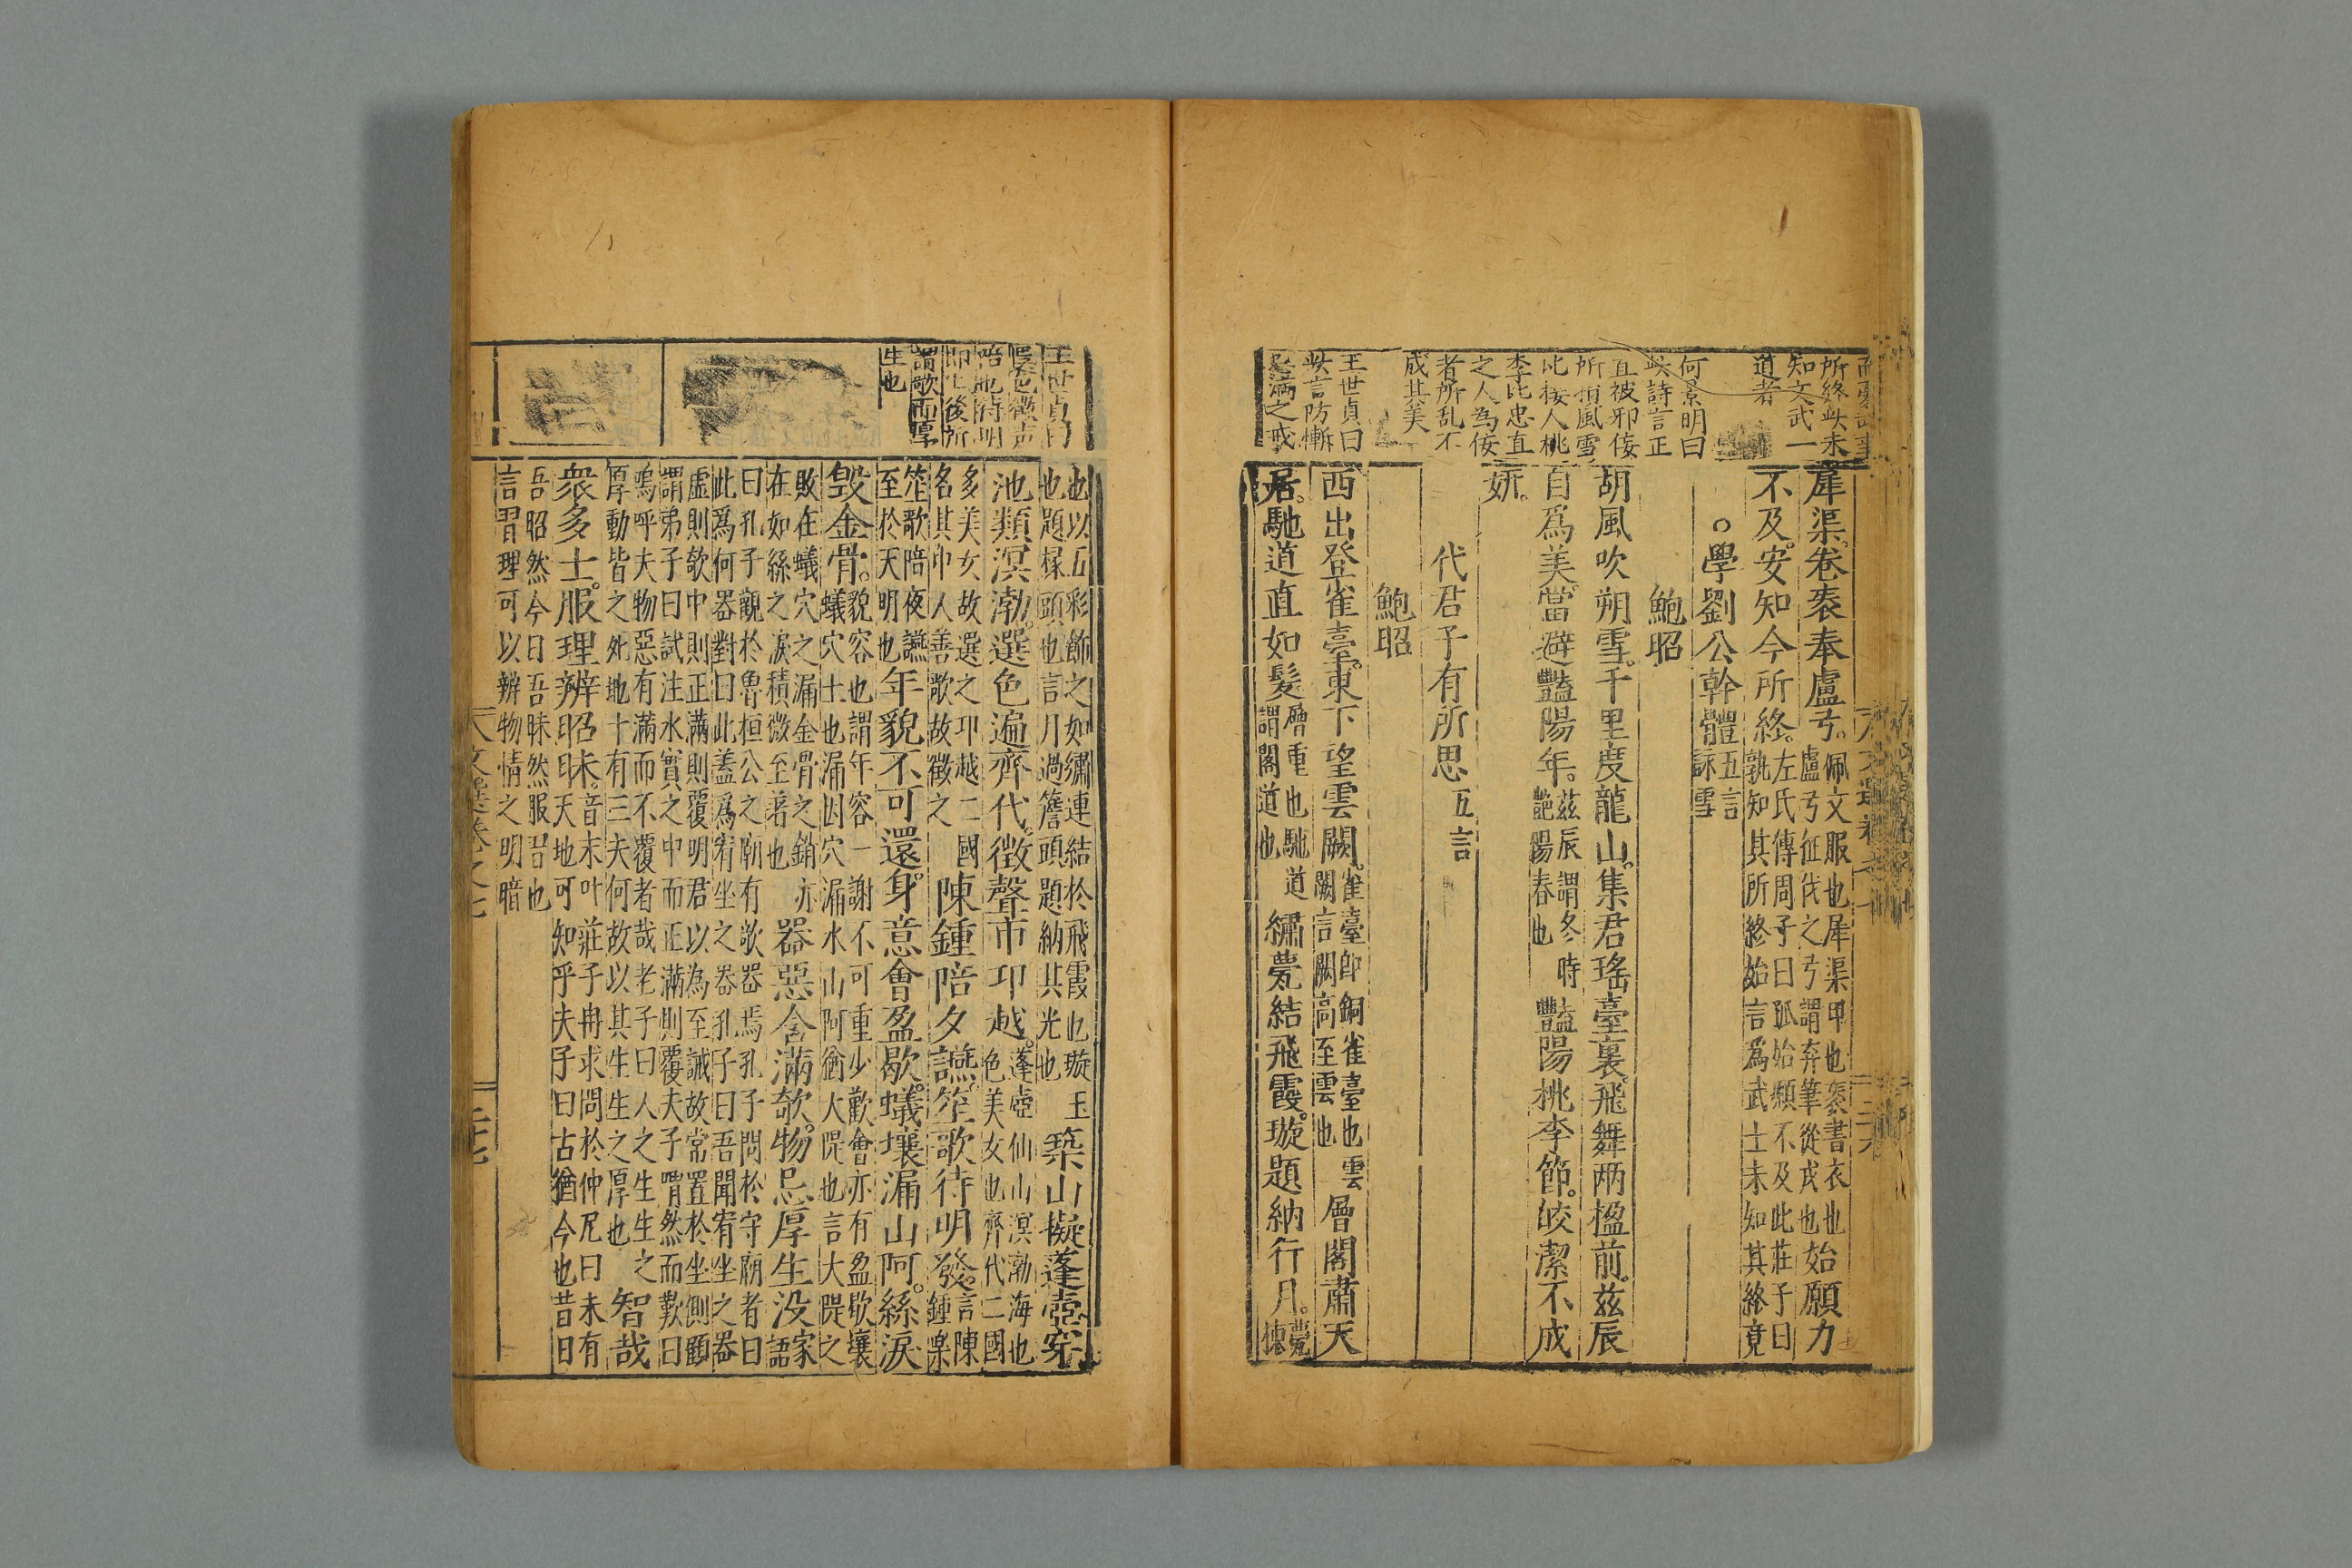 所終此未
知文武一
道者
何景明曰
此詩言正
直被邪佞
所損風雪
比接人桃
李比忠直
之人為佞
者所乱不
成其美
王世貞曰
此言防慚
忌滿之戒
犀渠。卷袠奉盧弓。佩文服也犀渠甲也袠書衣也
盧弓征伐之弓謂弃筆從戎也始願力
不及。安知今所終。左氏傳周子曰孤始願不及此莊子曰
孰知其所終始言爲武士未知其終竟
○學劉公幹體五言
詠雪
鮑昭
胡風吹朔雪。千里度龍山。集君瑤臺裏。飛舞兩楹前。茲辰
自爲美。當避豔陽年。茲辰謂冬時
艷陽春也豔陽桃李節。皎潔不成
妍。
代君子有所思五言
鮑昭
西出登雀臺。東下望雲闕。雀臺即銅雀臺也雲
闕言闕高至雲也層閣肅天
居。馳道直如髮層重也馳道
謂閣道也繡甍結飛霞。璇題納行月。甍
榱
也以五彩飾之如繡連結於飛霞也璇玉
也題椽頭也言月過簷頭題納其光也築山擬蓬壺穿
池類溟渤。選色遍齊代。徵聲帀卭越。蓬壺仙山溟渤海也
色美女也齊代二國
多美女故選之卭越二國
名其卭人善歌故徵之陳鍾陪夕讌。笙歌待明發。言陳
鍾樂
笙歌陪夜讌
至於天明也年貌不可還。身意會盈歇。蟻壤漏山阿。絲淚
毀金骨。貌容也謂年容一謝不可重少歡會亦有盈歇壤
蟻穴土也漏因穴漏水山阿猶大隄也言大隄之
敗在蟻穴之漏金骨之銷亦
在如絲之淚積微至著也器惡含滿欹。物忌厚生没家
語
曰孔子觀於魯桓公之廟有欹器焉孔子問於守廟者曰
此爲何器對曰此蓋爲宥坐之器孔子曰吾聞宥坐之器
虛則欹中則正滿則覆明君以為至誠故常置於坐側顧
謂弟子曰試注水實之中而正滿則覆夫子喟然而歎曰
嗚呼夫物惡有滿而不覆者哉老子曰人之生生之
厚動皆之死地十有三夫何故以其生生之厚也智哉
衆多士。服理辨昭昧。音末叶莊子冉求問於仲尼曰未有
天地可知乎夫子曰古猶今也昔日
吾昭然今日吾昧然服習也
言習理可以辨物情之明暗
文選卷之七
王世貞曰
選色徵声
陪也待明
即生後所
謂歌而厚
生也